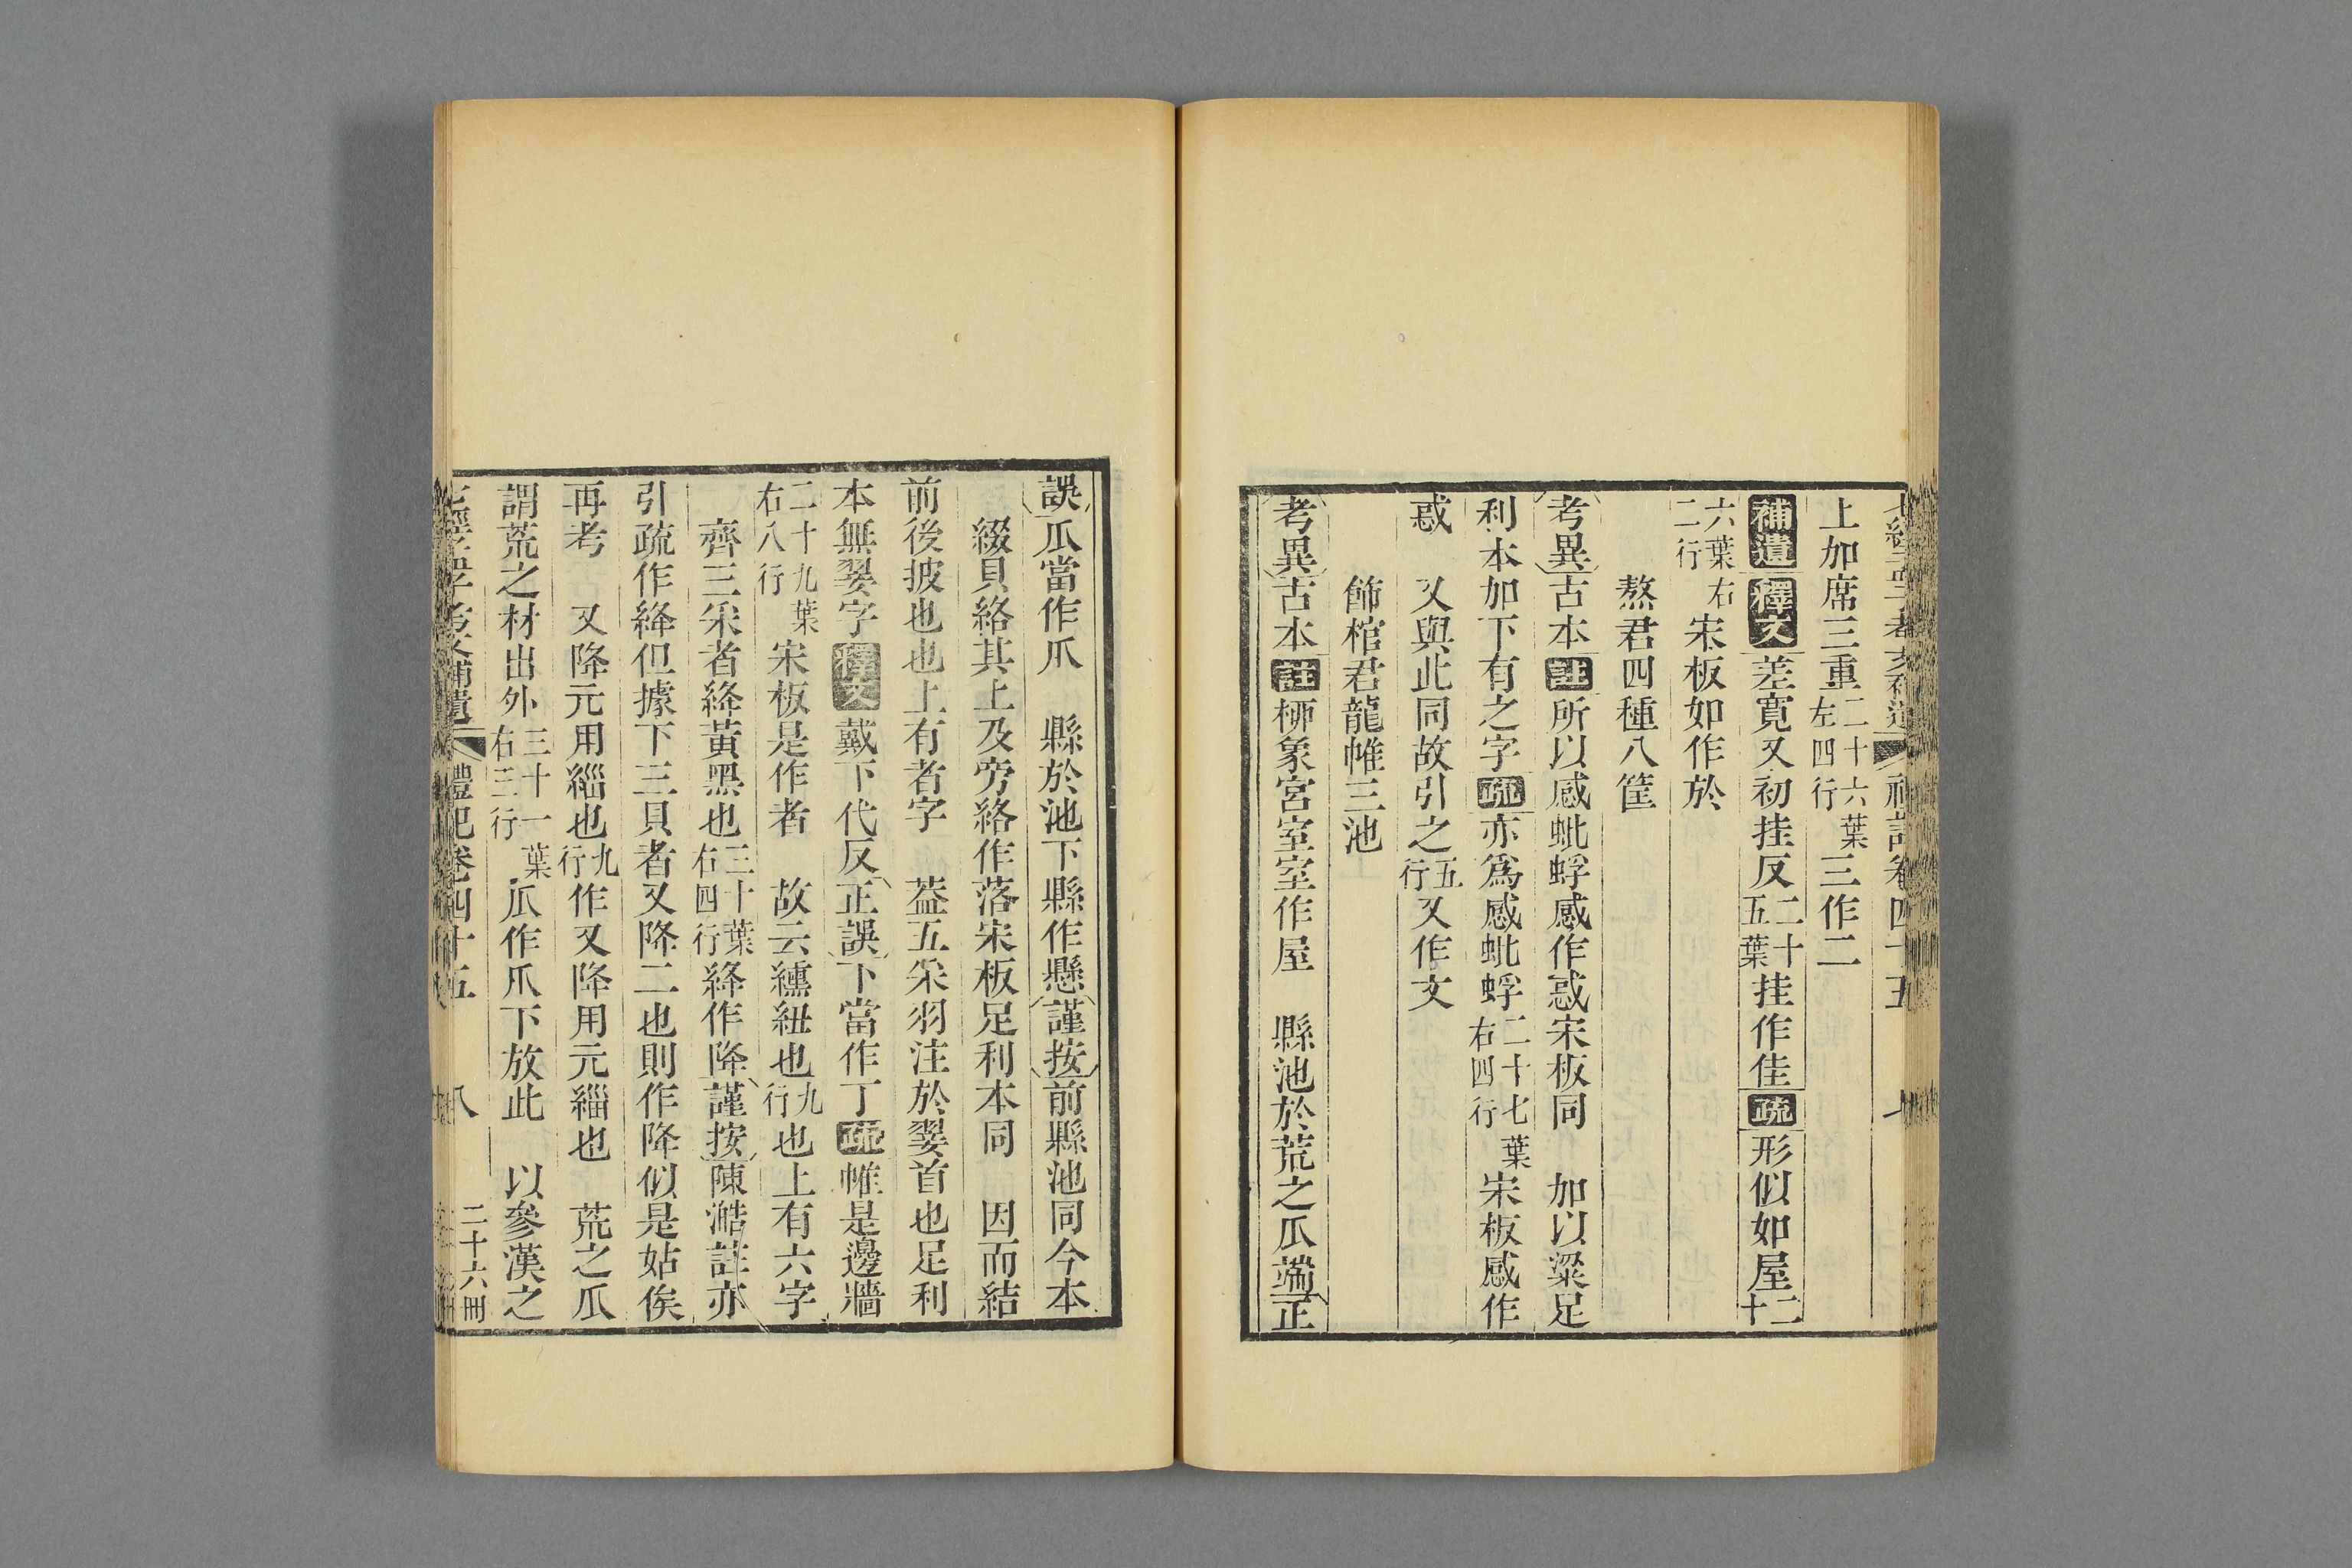 上加席三重二十六葉左四行三作二
補遺釋文差寬又初挂反二十五葉挂作佳疏形似如屋二十
六葉右二行宋板如作於
熬君四種八筐
考異古本註所以感蚍蜉感作惑宋板同　加以粱足
利本加下有之字疏亦爲感蚍蜉二十七葉右四行宋板感作
惑　又與此同故引之五行又作文
飾棺君龍帷三池
考異古本註柳象宮室室作屋　縣池於荒之瓜端正
誤瓜當作爪　縣於池下縣作懸謹按前縣池同今本
綴貝絡其上及旁絡作落宋板足利本同　因而結
前後披也也上有者字　葢五采羽注於翣首也足利
本無翣字釋文戴下代反正誤下當作丁疏帷是邊牆
二十九葉右八行宋板是作者　故云纁紐也九行也上有六字
齊三采者絳黃黑也三十葉右四行絳作降謹按陳澔註亦
引疏作絳但據下三貝者又降二也則作降似是姑俟
再考　又降元用緇也九行作又降用元緇也　荒之瓜
謂荒之材出外三十一葉右三行瓜作爪下放此　以參漢之
七經孟子考文補遺　禮記卷四十五　八　二十六冊